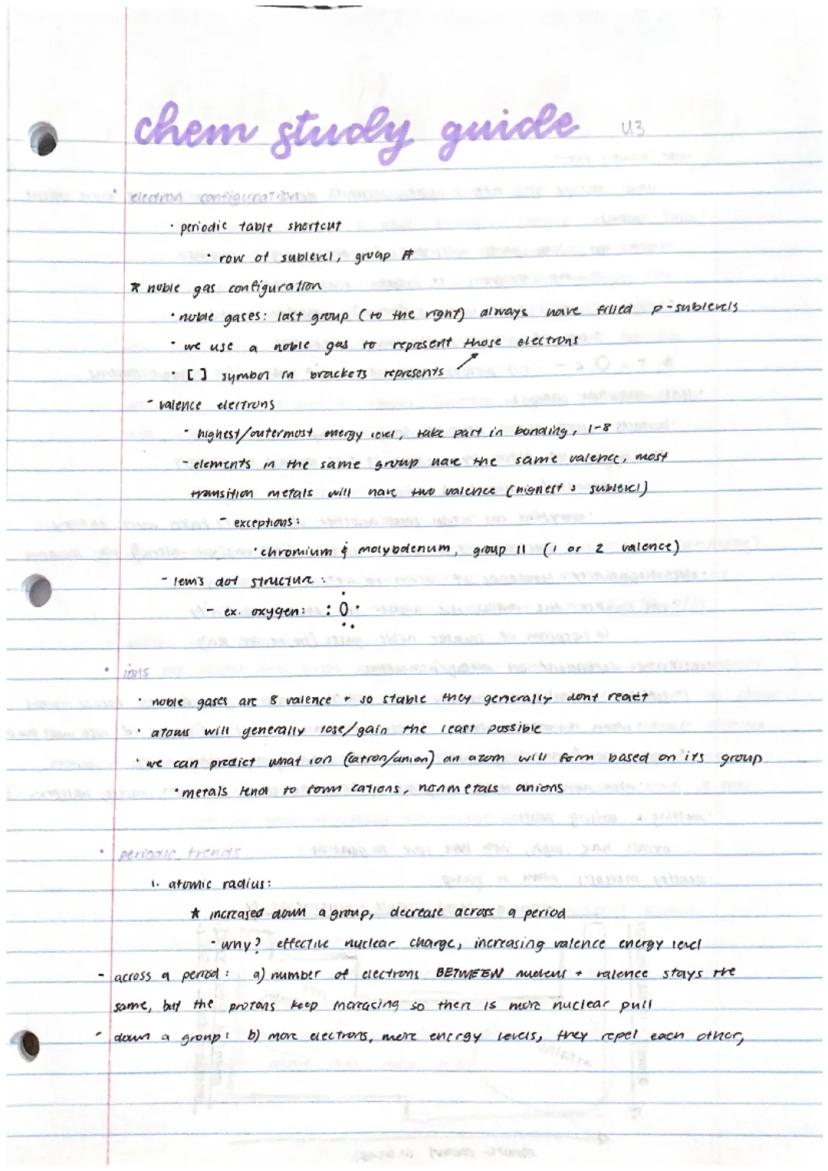 chem study guide U3
• electron configurations
• periodic table shortcut
• row of sublevel, group #
* noble gas configuration
• noble gases: last group (to the right) always have filled p-sublevels
• we use a noble gas to represent those electrons
• [ ] symbol in brackets represents ↗
- valence electrons
- highest/outermost energy level, take part in bonding, 1-8
- elements in the same group have the same valence, most
transition metals will have two valence (highest s sublevel)
- exceptions:
• chromium & molybdenum, group 11 (1 or 2 valence)
- lewis dot structure:
- ex. oxygen: :O:
• ions
• noble gases are 8 valence + so stable they generally dont react
• atoms will generally lose/gain the least possible
• we can predict what ion (cation/anion) an atom will form based on its group
• metals tend to form cations, nonmetals anions
• periodic trends
1. atomic radius:
* increased down a group, decrease across a period
- why? effective nuclear charge, increasing valence energy level
- across a period: a) number of electrons BETWEEN nucleus + valence stays the
same, but the protons keep increasing so there is more nuclear pull
- down a group: b) more electrons, more energy levels, they repel each other,